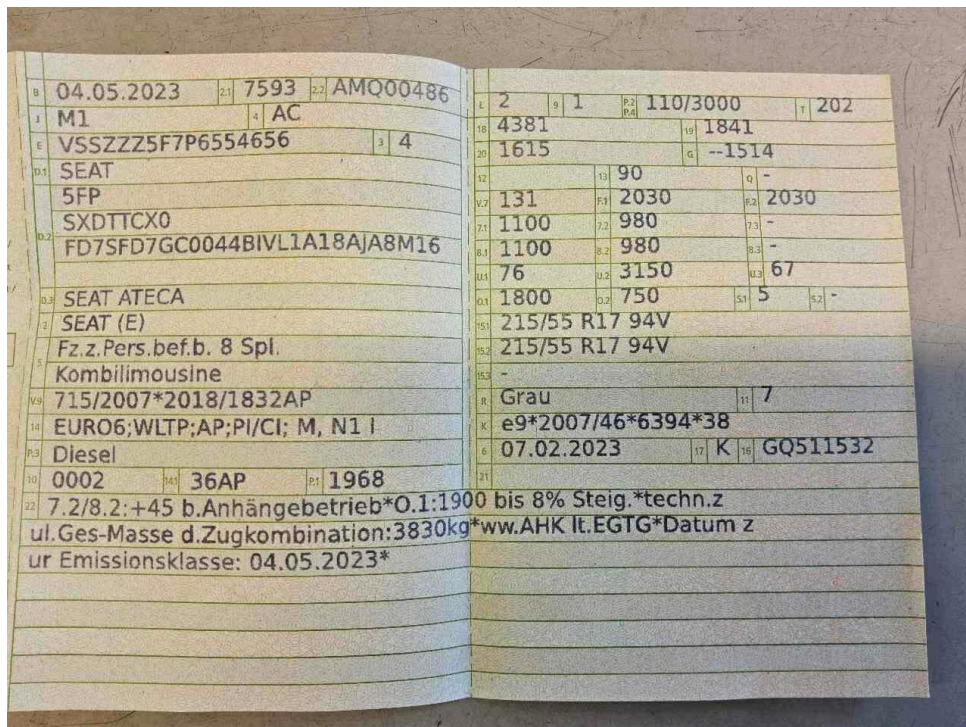 B 04.05.2023 2.1 7593 2.2 AMQ00486
J M1 4 AC
E VSSZZZ5F7P6554656 3 4
D.1 SEAT
5FP
D.2 SXDTTCX0
FD7SFD7GC0044BIVL1A18AJA8M16
D.3 SEAT ATECA
2 SEAT (E)
5 Fz.z.Pers.bef.b. 8 Spl.
Kombilimousine
V.9 715/2007*2018/1832AP
14 EURO6;WLTP;AP;PI/CI; M, N1 I
P.3 Diesel
10 0002 14.1 36AP P.1 1968
L 2 9 1 P.2 P.4 110/3000 T 202
18 4381 19 1841
20 1615 G --1514
12 13 90 Q -
V.7 131 F.1 2030 F.2 2030
7.1 1100 7.2 980 7.3 -
8.1 1100 8.2 980 8.3 -
U.1 76 U.2 3150 U.3 67
O.1 1800 O.2 750 S.1 5 S.2 -
15.1 215/55 R17 94V
15.2 215/55 R17 94V
15.3 -
R Grau 11 7
K e9*2007/46*6394*38
6 07.02.2023 17 K 16 GQ511532
21
22 7.2/8.2:+45 b.Anhängebetrieb*O.1:1900 bis 8% Steig.*techn.z
ul.Ges-Masse d.Zugkombination:3830kg*ww.AHK lt.EGTG*Datum z
ur Emissionsklasse: 04.05.2023*